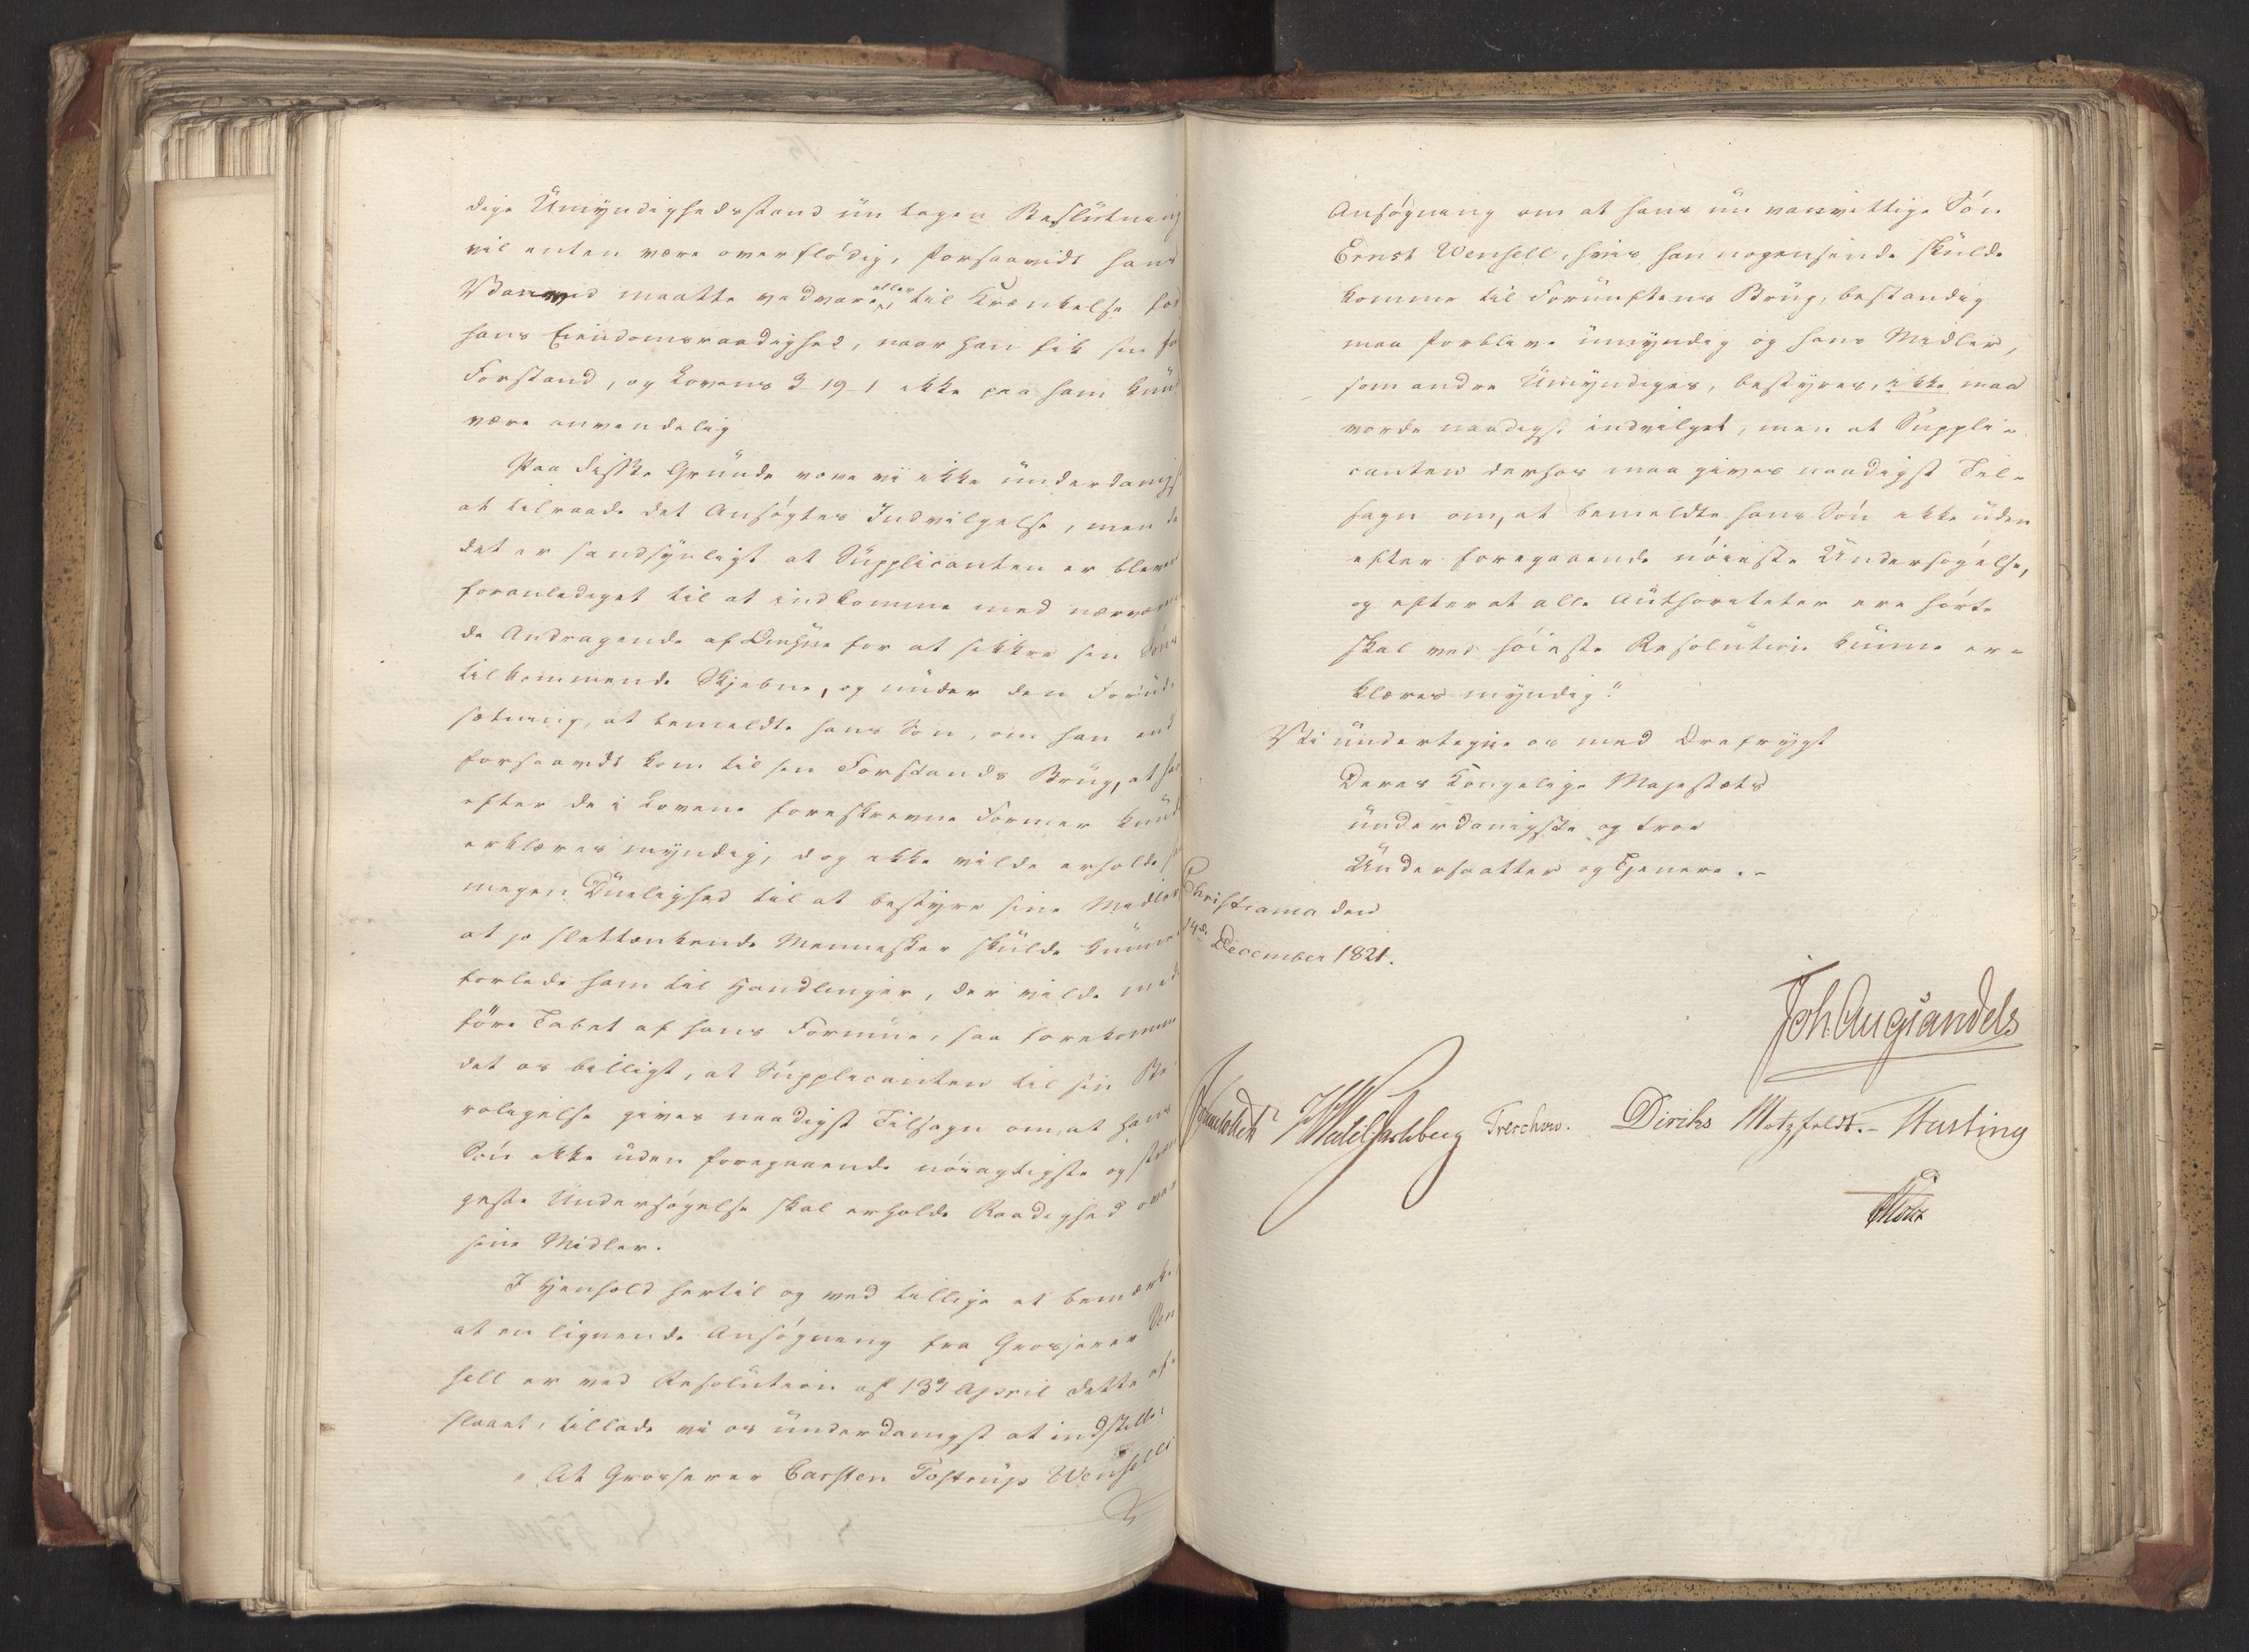 dige Umyndighedsstand nu tagen Beslutning
vil enten være overflødig, forsaavidt hans
Vanvid maatte vedvare, eller til Krænkelse for
hans Eiendomsraadighed, naar han fik sin
Forstand, og Lovens 3-19-1 ikke paa ham kun
være anvendelig
Paa disse Grunde vove vi ikke underdanigst
at tilraade det Ansøgtes Indvilgelse, men da
det er sandsynligt at Supplicanten er bleven
foranlediget til at indkomme med nærværen
de Andragende af Omhue for at sikkre sin Søns
tilkommende Skjebne, og under den Forud-
sætning, at bemeldte hans Søn, om han end
forsaavidt kom til sin Forstands Brug, at han
efter de i Loven foreskrevne Former kunde
erklæres myndig, dog ikke vilde erholde saa
megen Duelighed til at bestyre sine Midler
at jo slettænkende Mennesker skulde kunne
forlede ham til Handlinger, der vilde med
føre Tabet af hans Formue, saa forekommer
det os billigt, at Supplicanten til sin Be-
roligelse gives naadigst Tilsagn om, at hans
Søn ikke uden foregaaende nøiagtigste og stræn
geste Undersøgelse skal erholde Raadighed over
sine Midler.
I Henhold hertil og ved tillige at bemærke,
at en lignende Ansøgning fra Grosserer Wen
sell er ved Resolution af 13de April dette af-
slaaet, tillade vi os underdanigst at indstille:
"At Grosserer Carsten Tostrup Wensells
Ansøgning om at hans nu vanvittige Søn
Ernst Wensell, hvis han nogensinde skulde
komme til Fornuftens Brug, bestandig
maa forblive umyndig og hans Midler,
som andre Umyndiges, bestyres, ikke maa
vorde naadigst indvilget, men at Suppli-
canten derhos maa gives naadigst Til-
sagn om, at bemeldte hans Søn ikke uden
efter foregaaende nøieste Undersøgelse,
og efterat alle Authoriteter ere hørte
skal ved høieste Resolution kunne er-
klæres myndig."
Vi undertegne os med Ærefrygt
Deres Kongelige Majestæts
underdanigste og troe
Undersaatter og Tjenere.-
Christiania den
14de December 1821.
Joh. Aug Sandels
Sommerhielm Collett Treschow. Diriks Motzfeldt.- Fasting
Holst